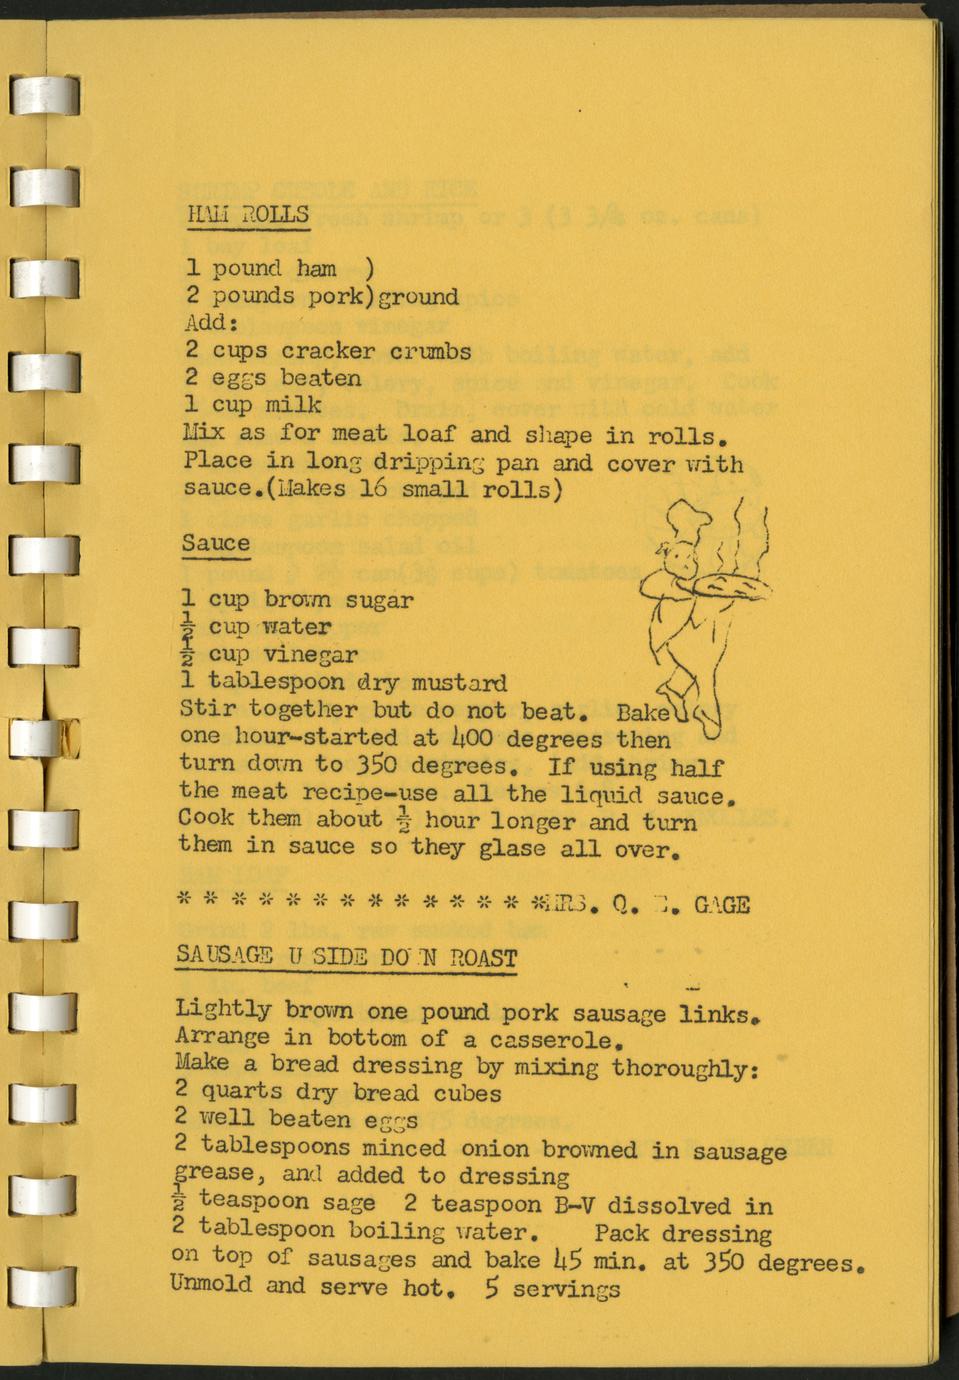 HAM ROLLS
1 pound ham )
2 pounds pork)ground
Add:
2 cups cracker crumbs
2 eggs beaten
1 cup milk
Mix as for meat loaf and shape in rolls.
Place in long dripping pan and cover with
sauce.(Makes 16 small rolls)
Sauce
1 cup brown sugar
½ cup water
½ cup vinegar
1 tablespoon dry mustard
Stir together but do not beat. Bake
one hour-started at 400 degrees then
turn down to 350 degrees. If using half
the meat recipe-use all the liquid sauce.
Cook them about ½ hour longer and turn
them in sauce so they glase all over.
* * * * * * * * * * * * * *MRS. Q. . GAGE
SAUSAGE U SIDE DO N ROAST
Lightly brown one pound pork sausage links.
Arrange in bottom of a casserole.
Make a bread dressing by mixing thoroughly:
2 quarts dry bread cubes
2 well beaten eggs
2 tablespoons minced onion browned in sausage
grease, and added to dressing
½ teaspoon sage 2 teaspoon B-V dissolved in
2 tablespoon boiling water. Pack dressing
on top of sausages and bake 45 min. at 350 degrees.
Unmold and serve hot. 5 servings